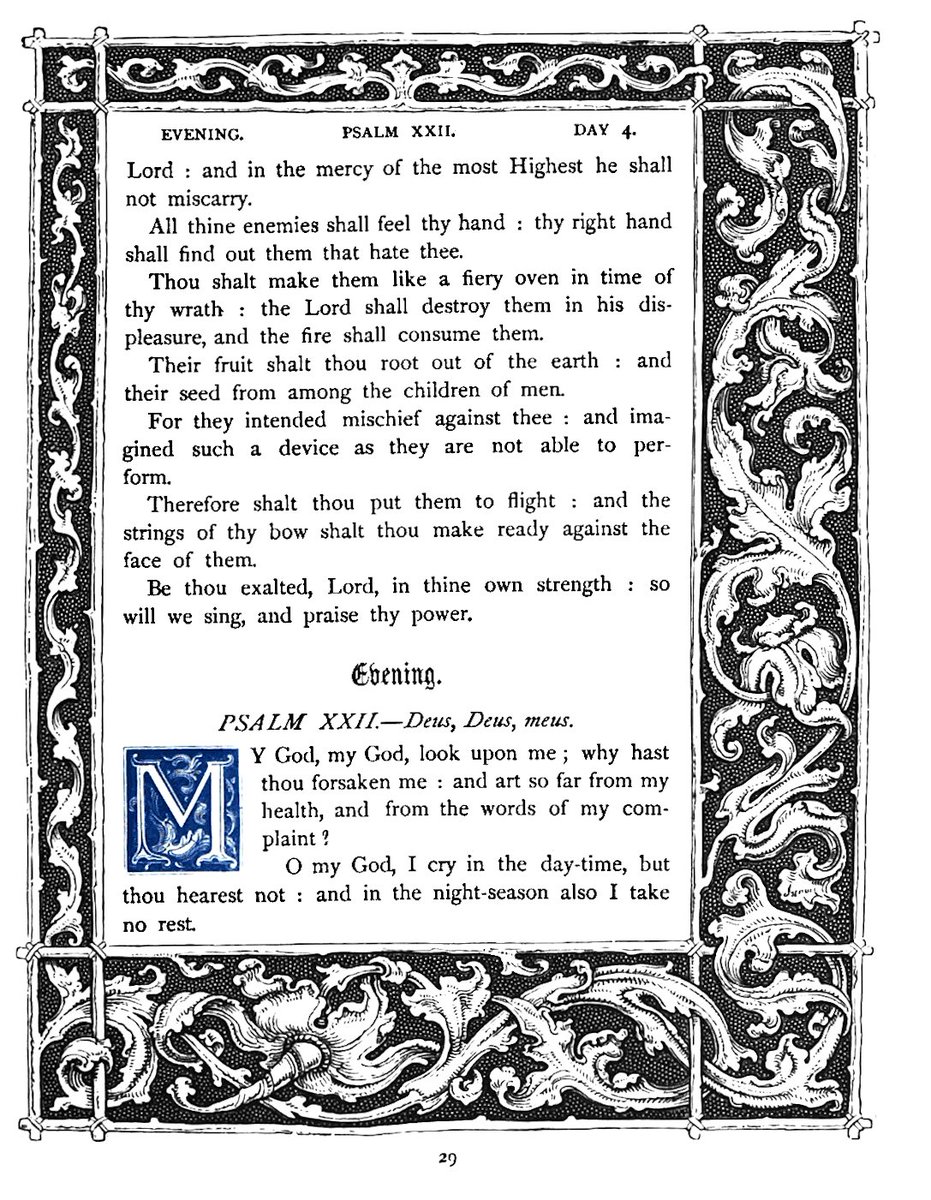 EVENING. PSALM XXII. DAY 4.
Lord : and in the mercy of the most Highest he shall
not miscarry.
All thine enemies shall feel thy hand : thy right hand
shall find out them that hate thee.
Thou shalt make them like a fiery oven in time of
thy wrath : the Lord shall destroy them in his dis-
pleasure, and the fire shall consume them.
Their fruit shalt thou root out of the earth : and
their seed from among the children of men.
For they intended mischief against thee : and ima-
gined such a device as they are not able to per-
form.
Therefore shalt thou put them to flight : and the
strings of thy bow shalt thou make ready against the
face of them.
Be thou exalted, Lord, in thine own strength : so
will we sing, and praise thy power.
Evening.
PSALM XXII.—Deus, Deus, meus.
MY God, my God, look upon me ; why hast
thou forsaken me : and art so far from my
health, and from the words of my com-
plaint ?
O my God, I cry in the day-time, but
thou hearest not : and in the night-season also I take
no rest.
29